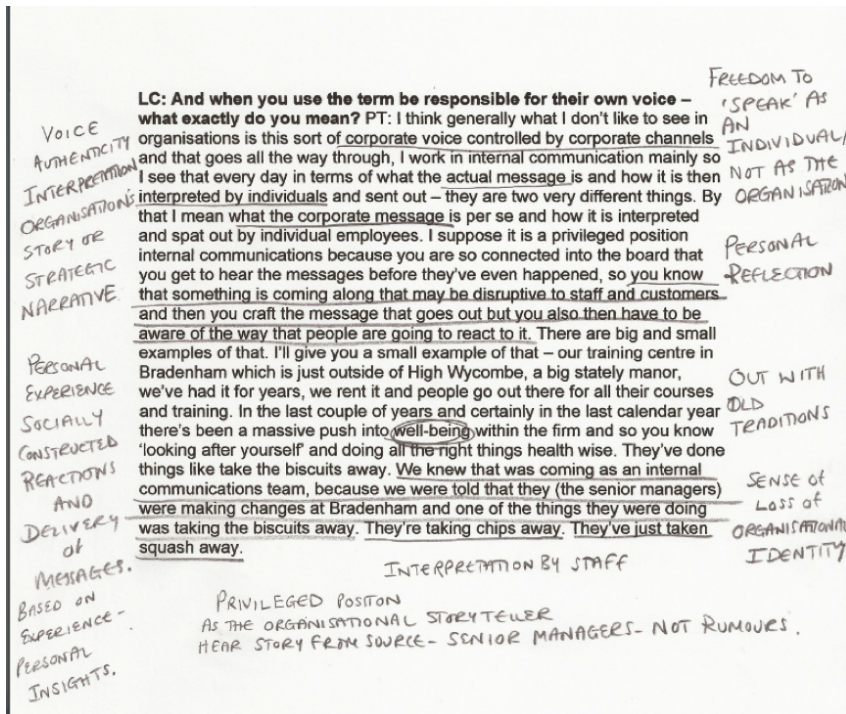 LC: And when you use the term be responsible for their own voice –
what exactly do you mean? PT: I think generally what I don't like to see in
organisations is this sort of corporate voice controlled by corporate channels
and that goes all the way through, I work in internal communication mainly so
I see that every day in terms of what the actual message is and how it is then
interpreted by individuals and sent out – they are two very different things. By
that I mean what the corporate message is per se and how it is interpreted
and spat out by individual employees. I suppose it is a privileged position
internal communications because you are so connected into the board that
you get to hear the messages before they've even happened, so you know
that something is coming along that may be disruptive to staff and customers
and then you craft the message that goes out but you also then have to be
aware of the way that people are going to react to it. There are big and small
examples of that. I'll give you a small example of that – our training centre in
Bradenham which is just outside of High Wycombe, a big stately manor,
we've had it for years, we rent it and people go out there for all their courses
and training. In the last couple of years and certainly in the last calendar year
there's been a massive push into well-being within the firm and so you know
'looking after yourself' and doing all the right things health wise. They've done
things like take the biscuits away. We knew that was coming as an internal
communications team, because we were told that they (the senior managers)
were making changes at Bradenham and one of the things they were doing
was taking the biscuits away. They're taking chips away. They've just taken
squash away.
VOICE
AUTHENTICITY
INTERPRETATION
ORGANISATION'S
STORY OR
STRATEGIC
NARRATIVE
PERSONAL
EXPERIENCE
SOCIALLY
CONSTRUCTED
REACTIONS
AND
DELIVERY
of
MESSAGES.
BASED ON
EXPERIENCE –
PERSONAL
INSIGHTS.
FREEDOM TO
'SPEAK' AS
AN
INDIVIDUAL/
NOT AS THE
ORGANISATION
PERSONAL
REFLECTION
OUT WITH
OLD
TRADITIONS
SENSE of
LOSS of
ORGANISATIONAL
IDENTITY
INTERPRETATION BY STAFF
PRIVILEGED POSITON
AS THE ORGANISATIONAL STORYTELLER
HEAR STORY FROM SOURCE – SENIOR MANAGERS – NOT RUMOURS.